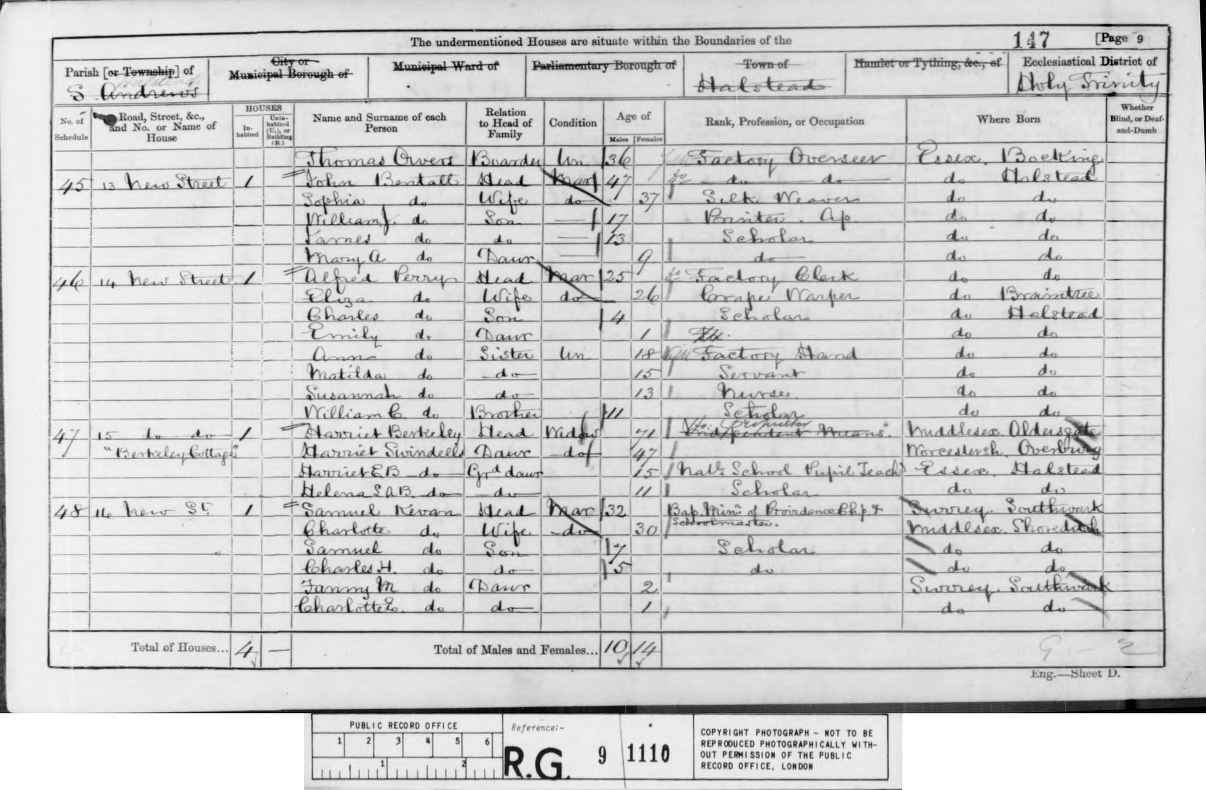 The undermentioned Houses are situate within the Boundaries of the 147 [Page 9
Parish [or Township] of City or Municipal Borough of Municipal Ward of Parliamentary Borough of Town of Hamlet or Tything, &c., of Ecclesiastical District of
S. Andrews Halstead Holy Trinity
No. of Schedule Road, Street, &c., and No. or Name of House HOUSES Inhabited Uninhabited (U.), or Building (B.) Name and Surname of each Person Relation to Head of Family Condition Age of Males Females Rank, Profession, or Occupation Where Born Whether Blind, or Deaf-and-Dumb
Thomas Owers Boarder Un 36 Factory Overseer Essex. Bocking
45 13 New Street 1 John Bentall Head Mar 47 do do do Halstead
Sophia do Wife do 37 Silk Weaver do do
William J. do Son 17 Printer. Ap do do
James do do 13 Scholar do do
Mary A do Daur 9 do do do
46 14 New Street 1 Alfred Perry Head Mar 25 Factory Clerk do do
Eliza do Wife do 26 Crape Warper do Braintree
Charles do Son 4 Scholar do Halstead
Emily do Daur 1 do do
Anna do Sister Un 18 Factory Hand do do
Matilda do do 15 Servant do do
Susannah do do 13 Nurse do do
William C. do Brother 11 Scholar do do
47 15 do do 1 Harriet Berkeley Head Widow 71 "Independent Means". Middlesex Aldersgate
"Berkeley Cottage" Harriet Swindells Daur do 47 Worcestersh. Overbury
Harriet E B do Grd daur 15 Natl School Pupil Teachr Essex. Halstead
Helena S A B. do do 11 Scholar do do
48 16 New St. 1 Samuel Kevan Head Mar 32 Bap. Minr of Providence Chp & Schoolmaster. Surrey Southwark
Charlotte do Wife do 30 Middlesex Shoreditch
Samuel do Son 7 Scholar do do
Charles H. do do 5 do do do
Fanny M do Daur 2 Surrey Southwark
Charlotte E. do do 1 do do
Total of Houses... 4 — Total of Males and Females... 10 14 9 - 2
Eng.—Sheet D.
PUBLIC RECORD OFFICE
1 2 3 4 5 6
1 2
Reference:-
R.G. 9 1110
COPYRIGHT PHOTOGRAPH - NOT TO BE
REPRODUCED PHOTOGRAPHICALLY WITH-
OUT PERMISSION OF THE PUBLIC
RECORD OFFICE, LONDON